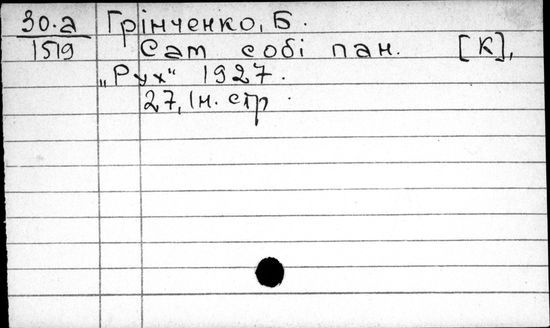 30.а Грінченко, Б.
1519 Сам собі пан. [К],
„Рух“ 1927.
27, 1н. стр.